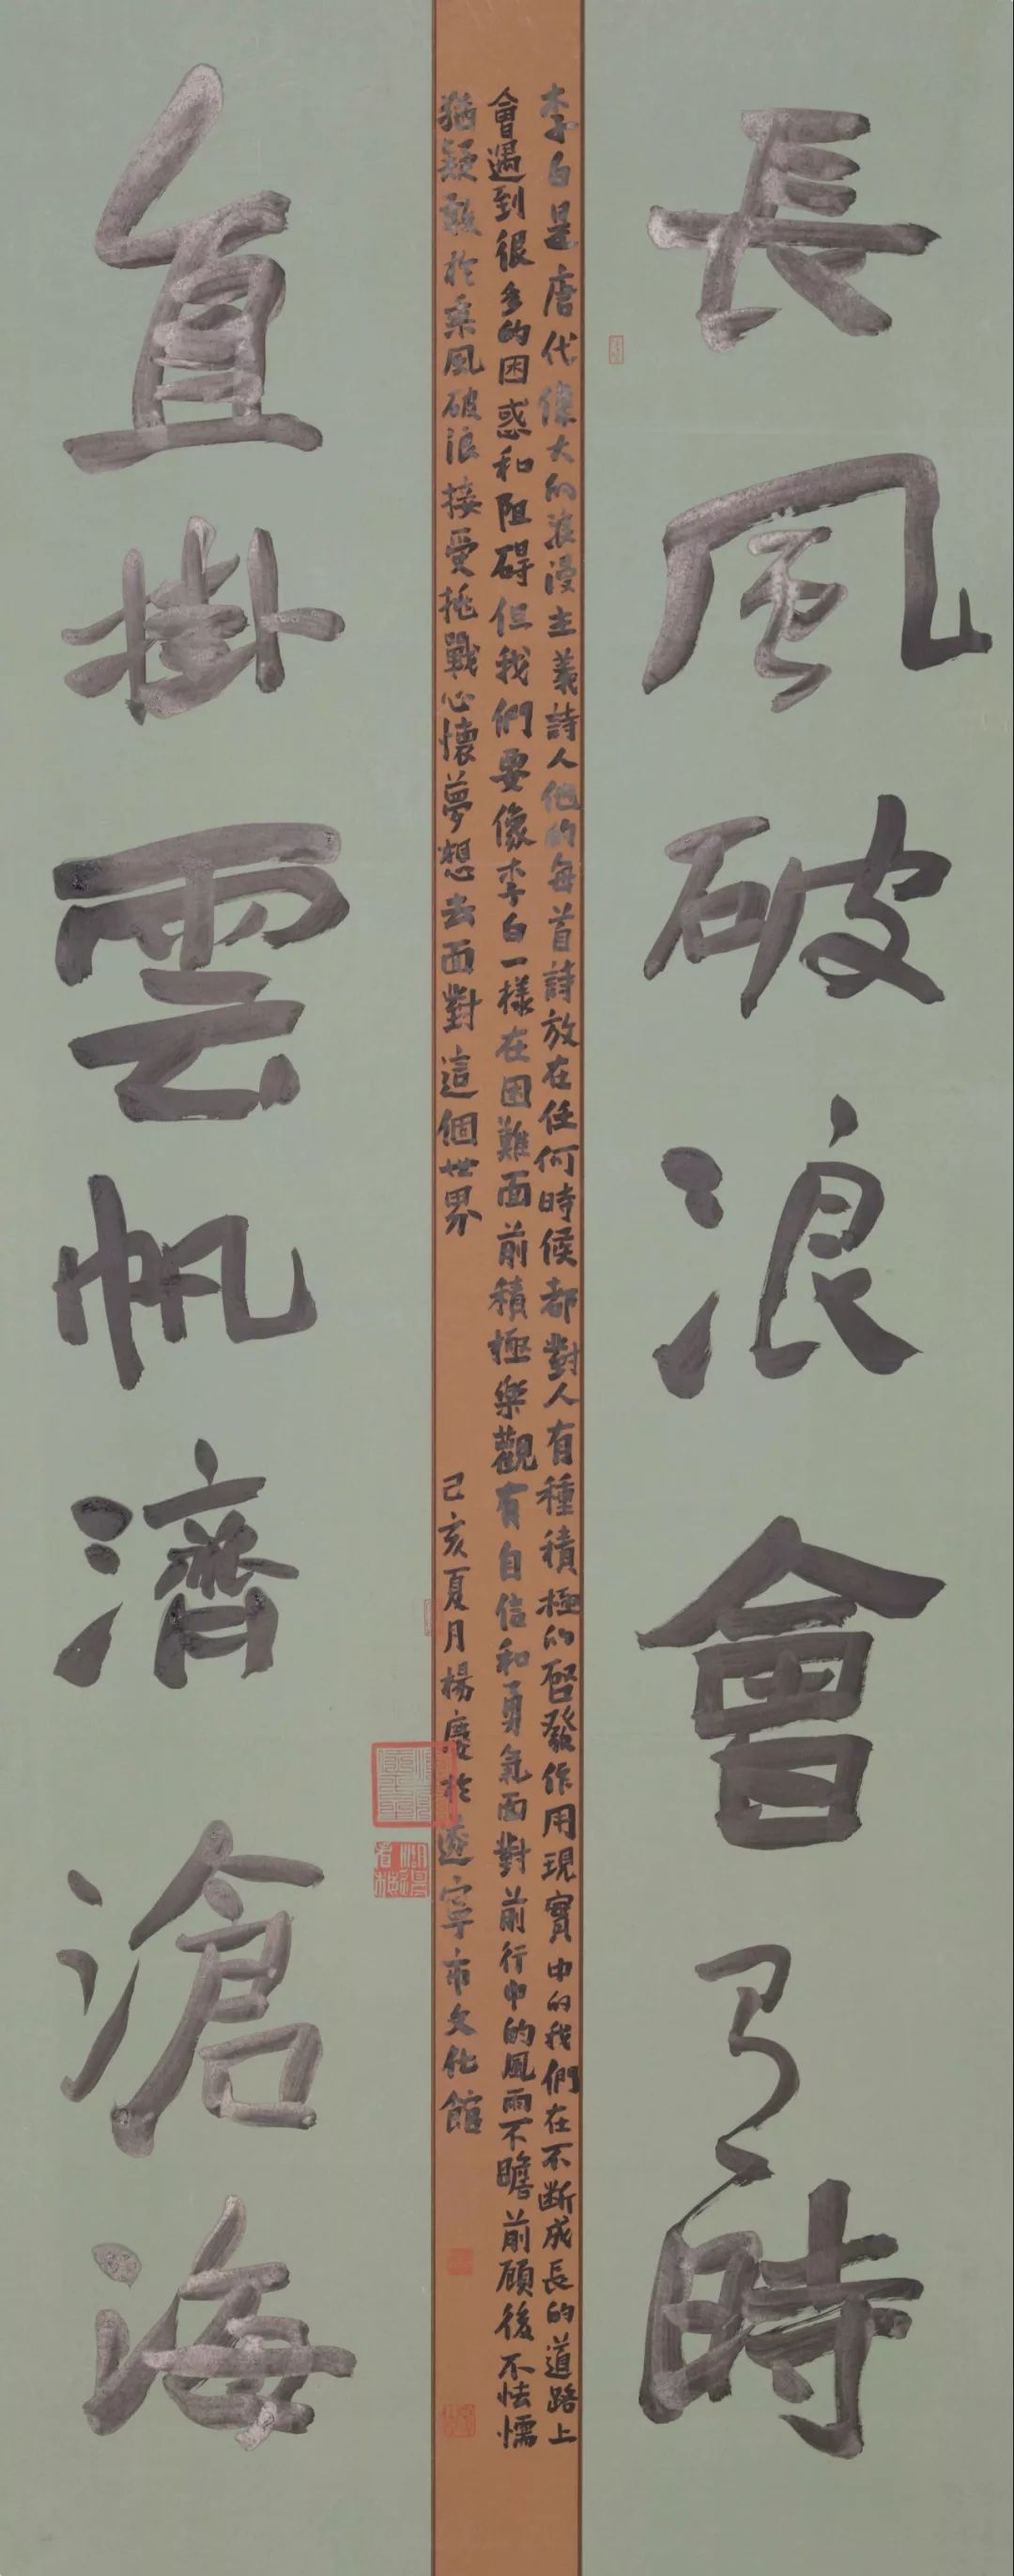 長風破浪會有時
李白是唐代偉大的浪漫主義詩人他的每首詩放在任何時候都對人有種積極的啓發作用現實中的我們在不斷成長的道路上
會遇到很多的困惑和阻碍但我們要像李白一樣在困難面前積極樂觀有自信和勇氣面對前行中的風雨不瞻前顧後不怯懦
猶疑敢於乘風破浪接受挑戰心懷夢想去面對這個世界
己亥夏月楊慶於遂寧市文化館
直掛雲帆濟滄海